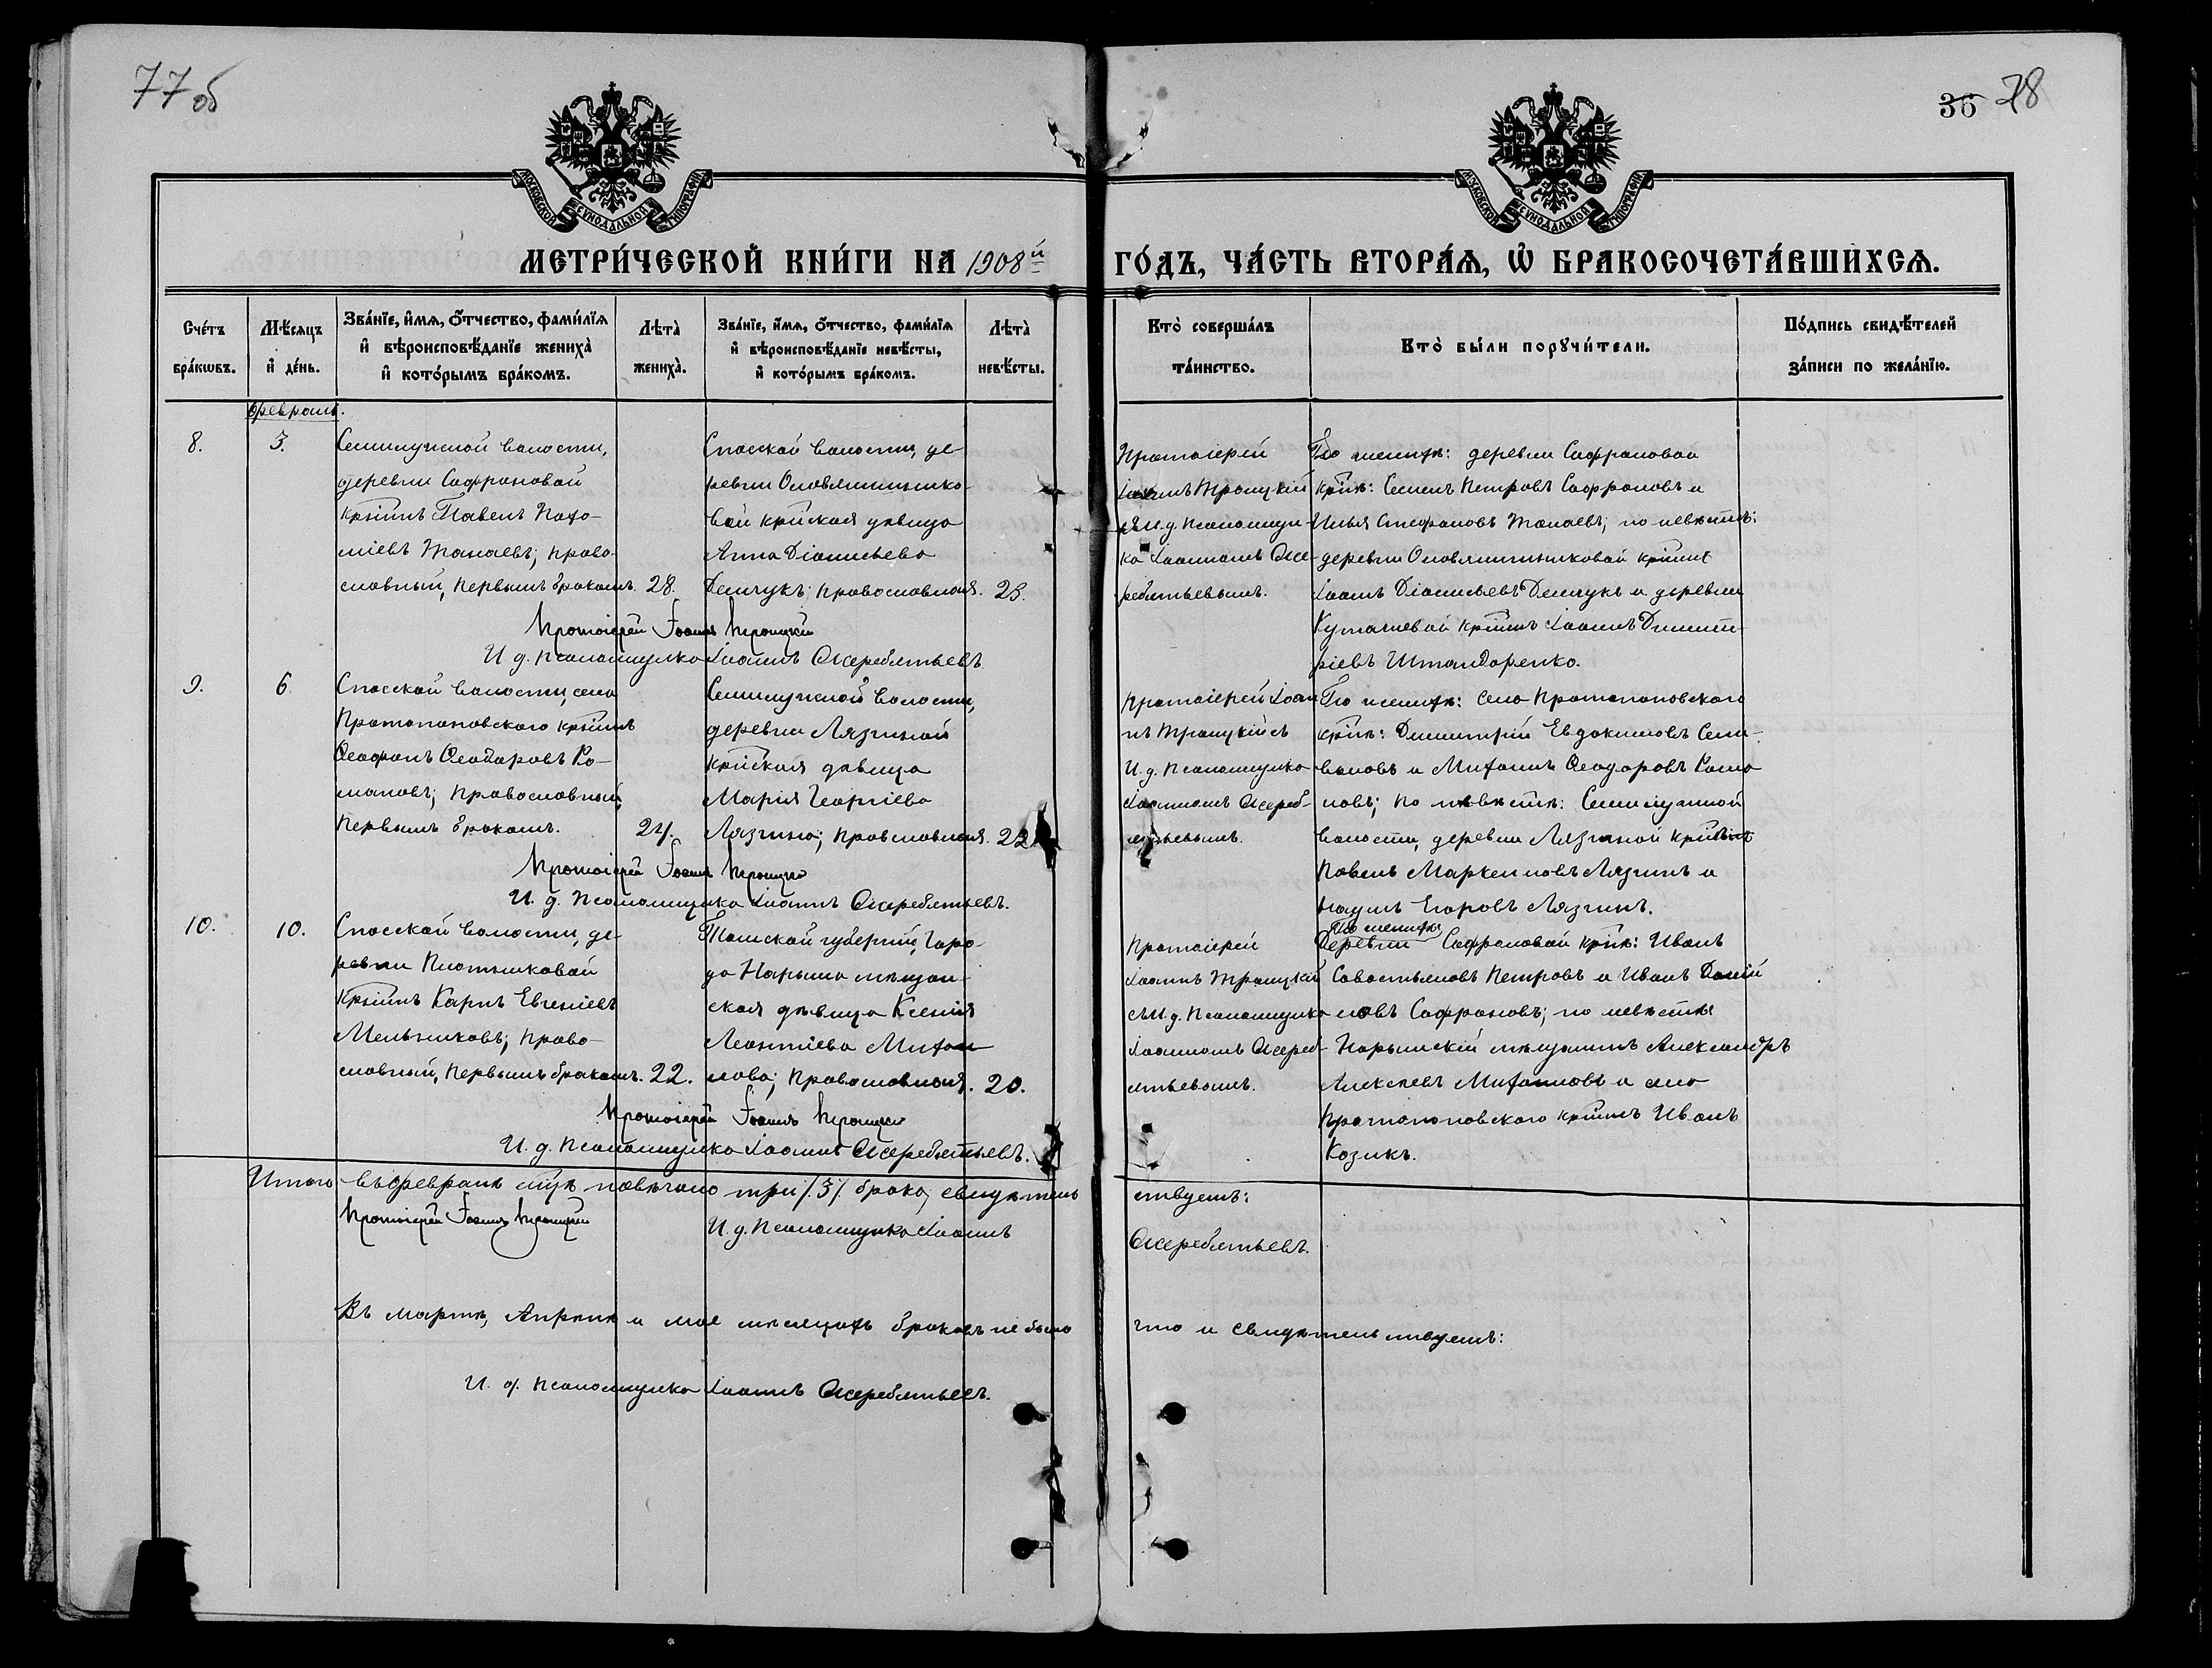 77 об
36 78
МОСКОВСКОЙ СѴНОДАЛЬНОЙ ТИПОГРАФІИ
МОСКОВСКОЙ СѴНОДАЛЬНОЙ ТИПОГРАФІИ
МЕТРИ́ЧЕСКОЙ КНИ́ГИ НА 1908й ГО́ДЪ, ЧА́СТЬ ВТОРА́Я, Ѽ БРАКОСОЧЕТА́ВШИХСЯ.
Сче́тъ бра́кѡвъ.
Мѣ́сяцъ и҆ де́нь.
Зва́нїе, и҆́мя, о҆́тчество, фами́лїя и҆ вѣроисповѣ́данїе жениха̀ и҆ кото́рымъ бра́комъ.
Лѣта̀ жениха̀.
Зва́нїе, и҆́мя, о҆́тчество, фами́лїя и҆ вѣроисповѣ́данїе невѣ́сты, и҆ кото́рымъ бра́комъ.
Лѣта̀ невѣ́сты.
Кто̀ соверша́лъ та́инство.
Кто̀ бы́ли порꙋчи́тели.
По́дпись свидѣ́телей за́писи по жела́нїю.
Февраль.
8.
3.
Семилужной волости,
деревни Сафроновой
кр͞нинъ Павелъ Пахо-
міевъ Тонаевъ; право-
славный, первымъ бракомъ.
28.
Спасской волости, де-
ревни Оловянишнико-
вой кр͞нская дѣвица
Анна Діонисьева
Демчукъ; православная.
23.
Протоіерей
Іоаннъ Троицкій
съ И.д. Псаломщи-
ка Іоанномъ Оже-
ребятьевымъ.
По женихѣ: деревни Сафроновой
кр͞не: Семенъ Петровъ Сафроновъ и
Илья Стефановъ Тонаевъ; по невѣстѣ:
деревни Оловянишниковой кр͞нинъ
Іоаннъ Діонисьевъ Демчукъ и деревни
Іоаннъ Димит-
ріевъ Штандаренко.
Протоіерей Іоаннъ Троицкій
И. д. Псаломщика Іоаннъ Ожеребятьевъ
9.
6.
Спасской волости, села
Протопоповского кр͞нинъ
Ѳеофанъ Ѳеодоровъ Ро-
мановъ; православный,
первымъ бракомъ.
24.
Семилужной волости,
деревни Лязгиной
кр͞нская дѣвица
Марія Георгіева
Лязгина; православная.
22
Протоіерей Іоан-
нъ Троицкій съ
И.д. Псаломщика
Іоанномъ Ожереб-
ятьевымъ.
По женихѣ: села Протопоповского
кр͞не: Димитрій Евдокимовъ Сели-
вановъ и Митоиъ Ѳеодоровъ Рома-
новъ; по невѣстѣ: Семилужной
волости, деревни Лязгиной кр͞нинъ
Павелъ Маркелловъ Лязгинъ и
Наумъ Егоровъ Лязгинъ.
Протоіерей Іоаннъ Троицкій
И. д. Псаломщика Іоаннъ Ожеребятьевъ.
10.
10.
Спасской волости, де-
ревни Плотниковой
кр͞нинъ Карпъ Евгеніевъ
Мельниковъ; право-
славный, первымъ бракомъ.
22.
Томской губерніи, горо-
да Нарыма мѣщан-
ская дѣвица Ксенія
Леонтіева Михай-
лова; православная.
20.
Протоіерей
Іоаннъ Троицкій
съ И.д. Псаломщика
Іоанномъ Ожереб-
ятьевымъ.
По женихѣ:
Деревни Сафроновой кр͞не: Иванъ
Савостьяновъ Петровъ и Иванъ Даній-
ловъ Сафроновъ; по невѣстѣ:
Нарымскій мѣщанинъ Александръ
Алексѣевъ Михайловъ и села
Протопоповского кр͞нинъ Иванъ
Козикъ.
Протоіерей Іоаннъ Троицкій
И. д. Псаломщика Іоаннъ Ожеребятьевъ.
Итого въ февралѣ м͞цѣ повѣнчано три /3/ брака, свидѣтель-
ствуемъ:
Протоіерей Іоаннъ Троицкій
И. д. Псаломщика Іоаннъ
Ожеребятьевъ.
Въ мартѣ, Апрѣлѣ и маѣ мѣсяцахъ браковъ не было
что и свидѣтельствуемъ:
И. д. Псаломщика Іоаннъ Ожеребятьевъ.